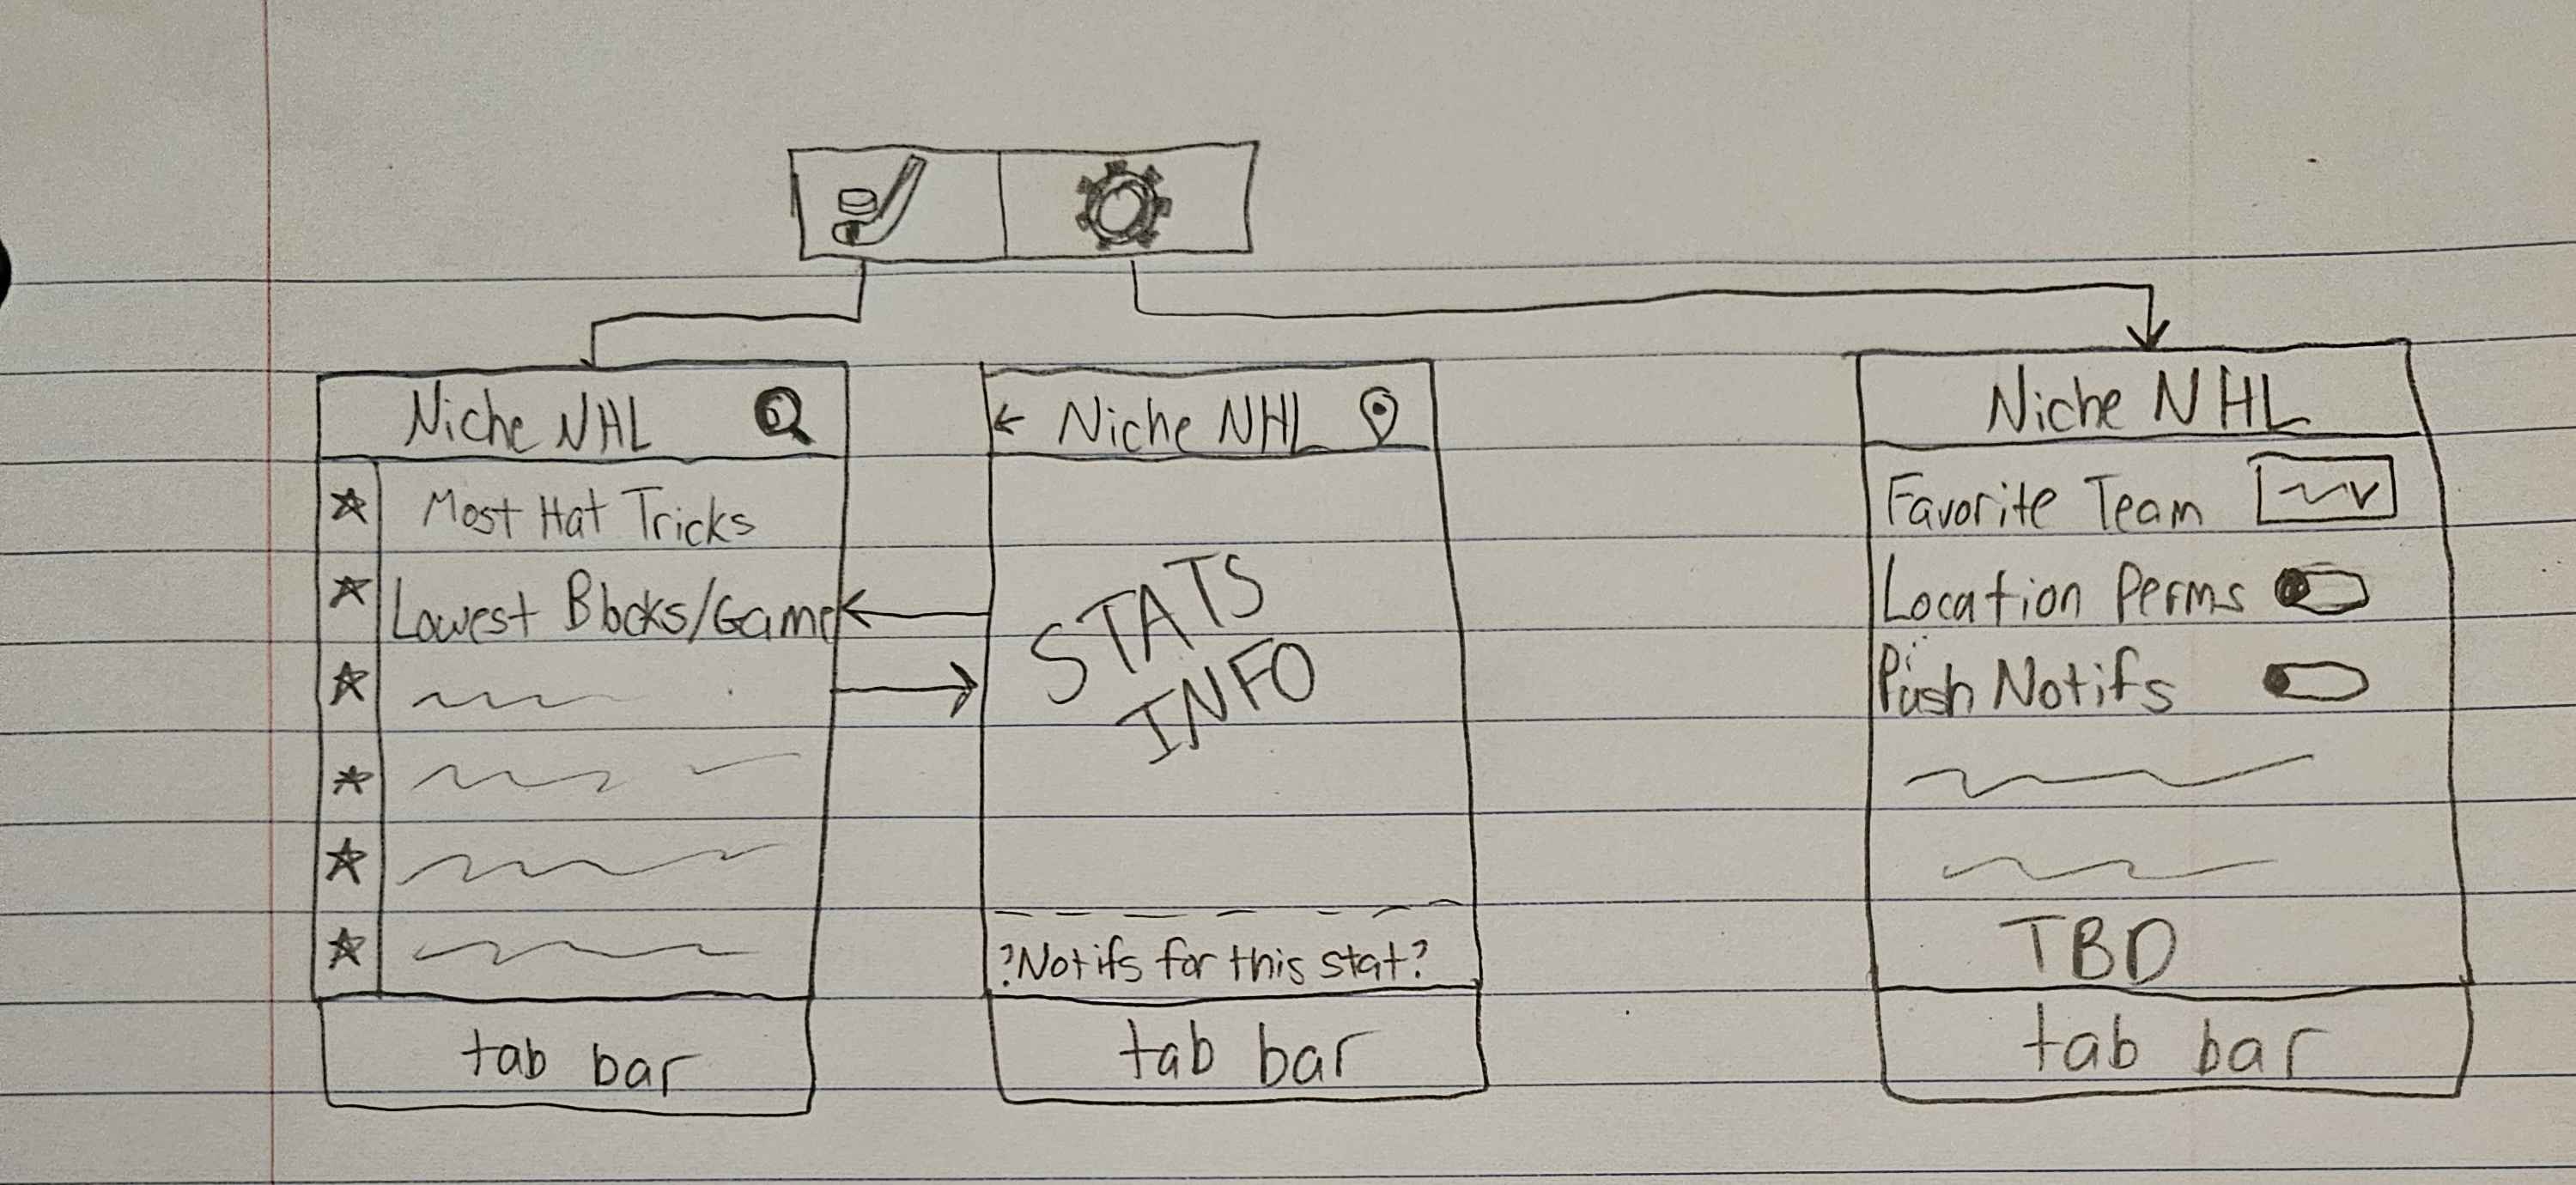 Niche NHL
Most Hat Tricks
Lowest Blocks/Game
tab bar
← Niche NHL
STATS
INFO
?Notifs for this stat?
tab bar
Niche NHL
Favorite Team
Location Perms
Push Notifs
TBD
tab bar